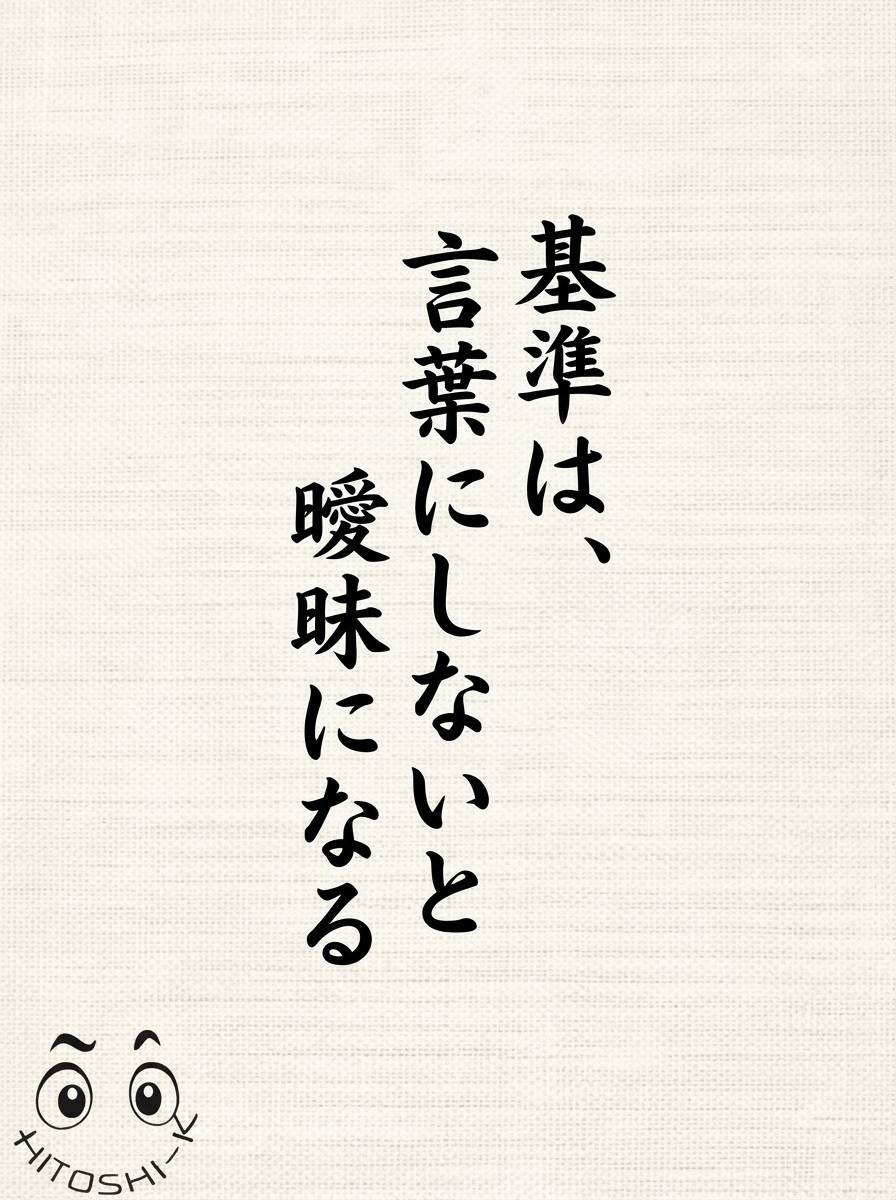 基準は、
言葉にしないと
曖昧になる
HITOSHI-K